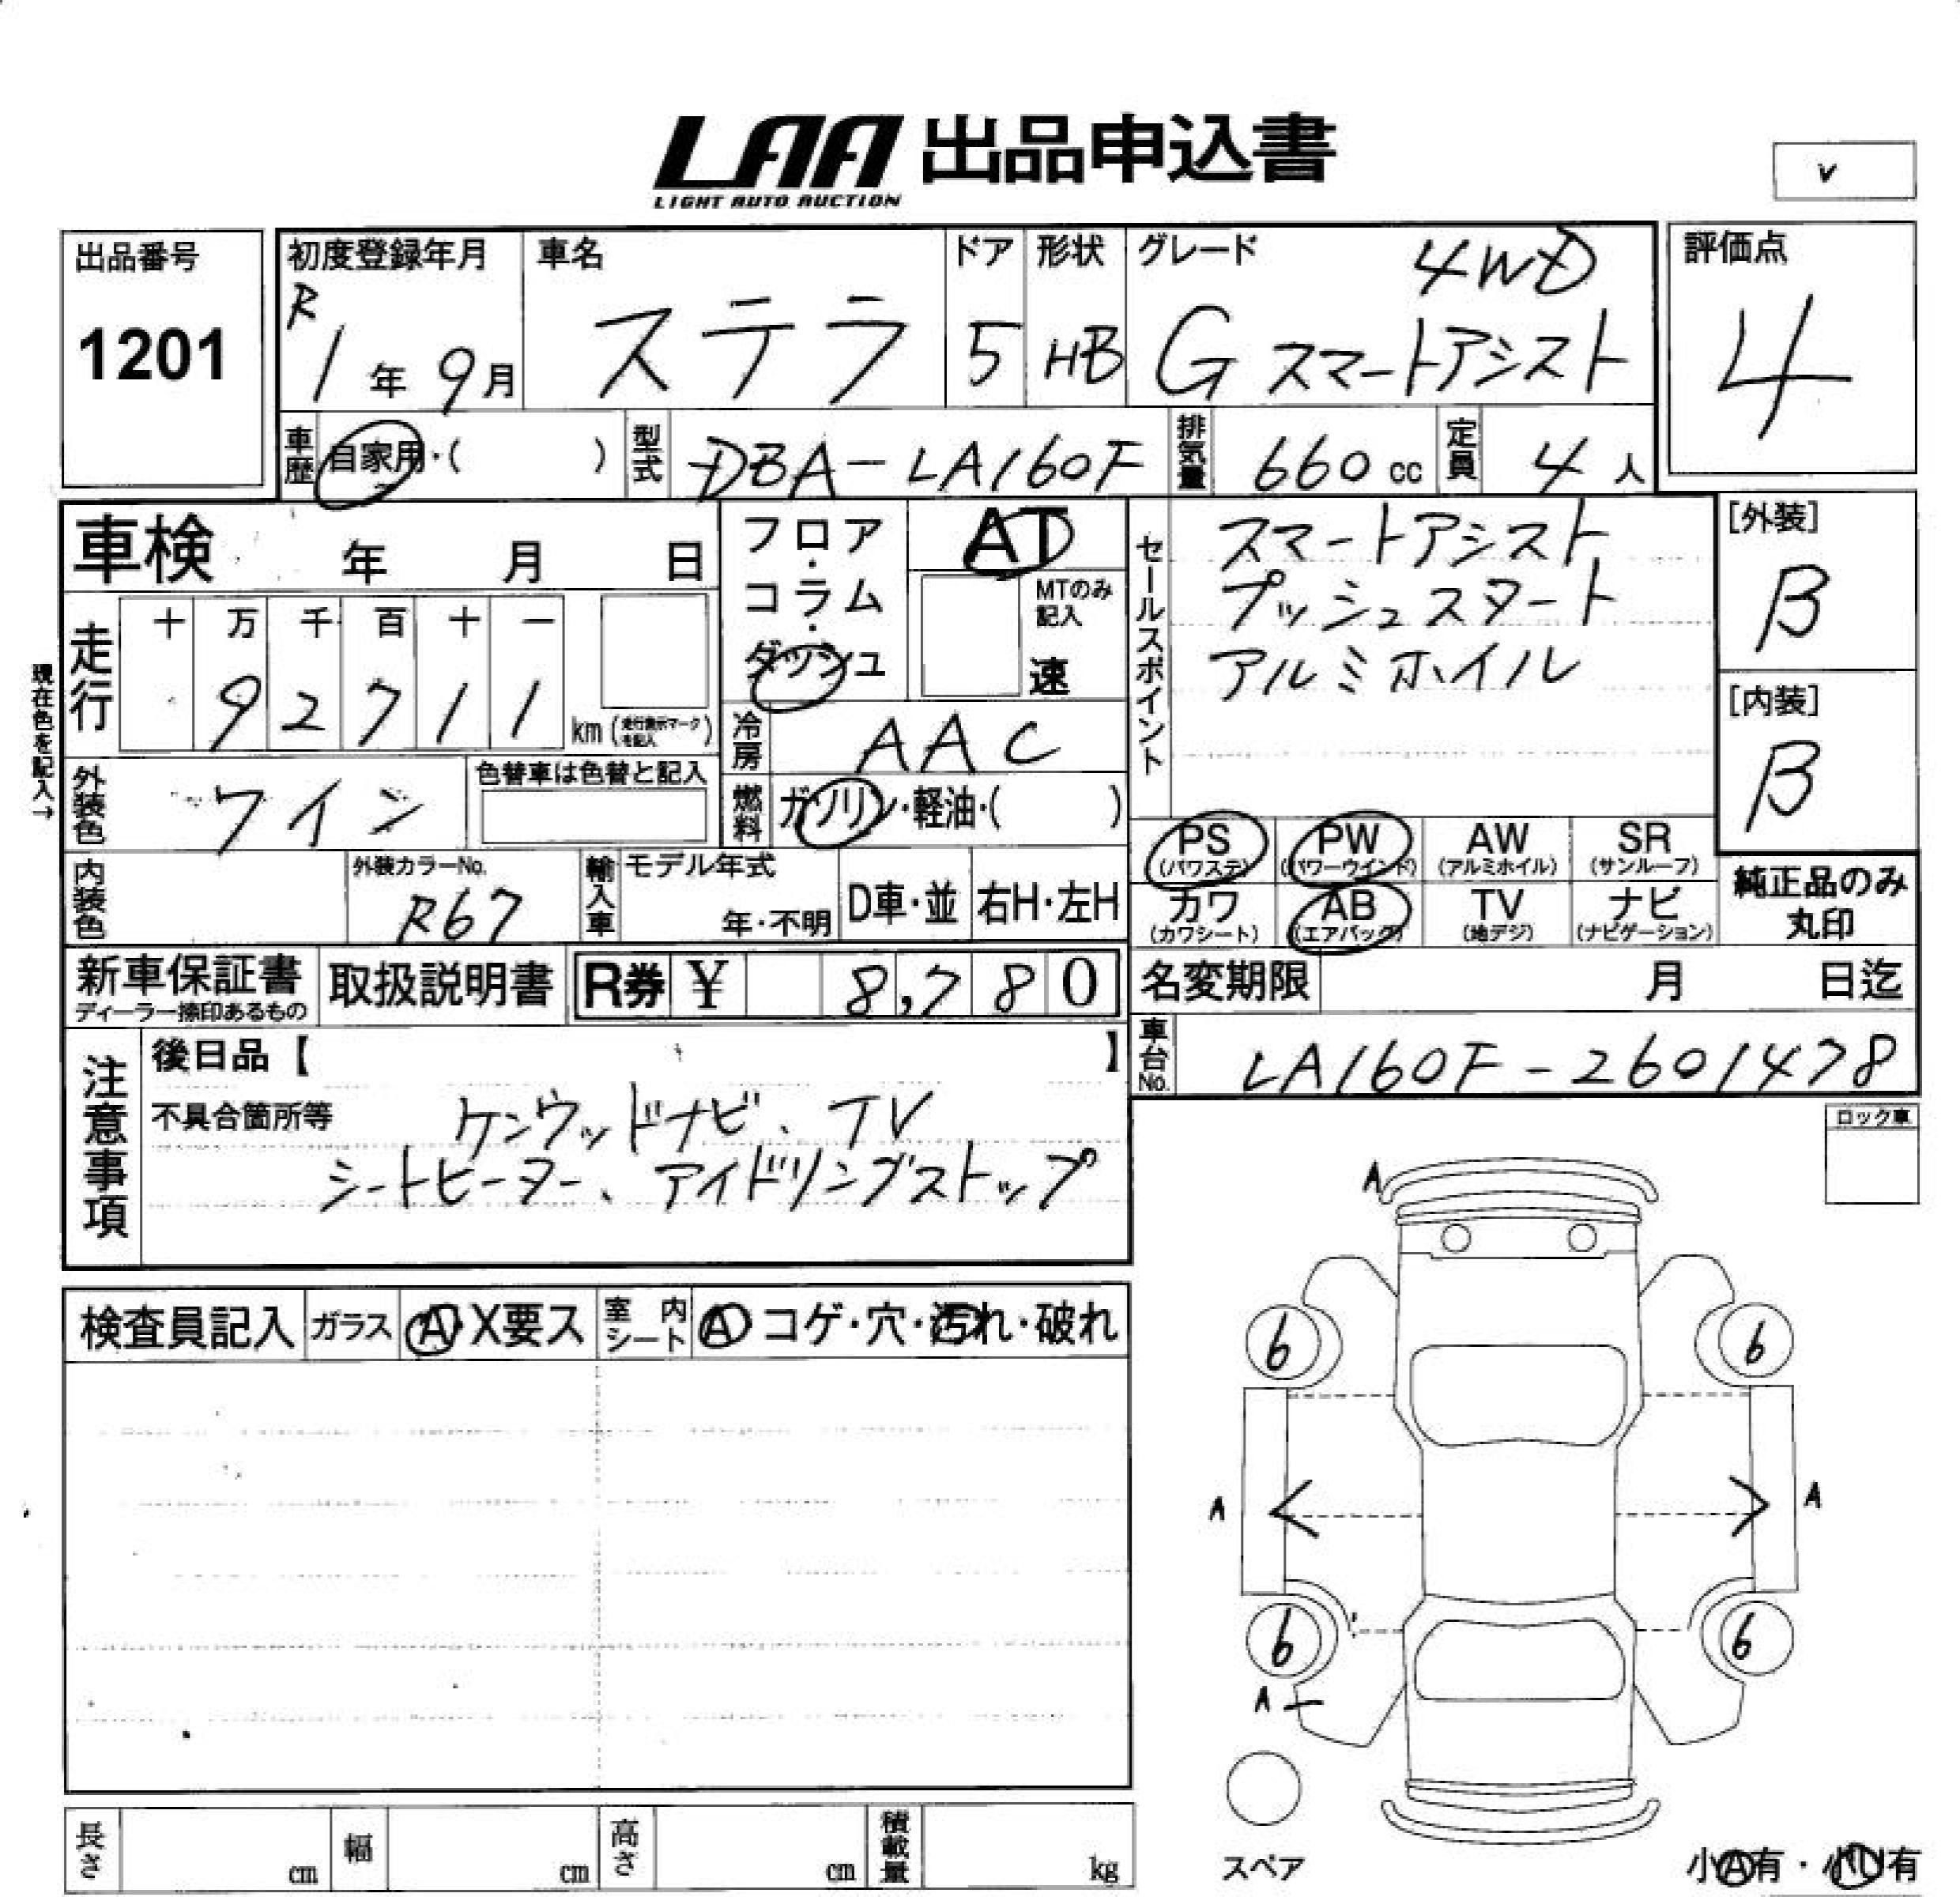 LAA 出品申込書
LIGHT AUTO AUCTION
v
出品番号
1201
初度登録年月
R
1年 9月
車名
ステラ
ドア
5
形状
HB
グレード
4WD
G スマートアシスト
評価点
4
車歴 自家用・( )
型式 DBA-LA160F
排気量 660cc
定員 4人
車検 年 月 日
フロア・コラム・ダッシュ
AT
MTのみ記入
速
セールスポイント
スマートアシスト
プッシュスタート
アルミホイル
[外装]
B
[内装]
B
現在色を記入→
走行
十 万 千 百 十 一
9 2 7 1 1
km (走行表示マークを記入)
冷房 AAC
外装色 ワイン
色替車は色替と記入
燃料 ガソリン・軽油・( )
PS (パワステ)
PW (パワーウインド)
AW (アルミホイル)
SR (サンルーフ)
カワ (カワシート)
AB (エアバック)
TV (地デジ)
ナビ (ナビゲーション)
純正品のみ
丸印
内装色
外装カラーNo.
R67
輸入車
モデル年式
年・不明
D車・並
右H・左H
新車保証書
ディーラー捺印あるもの
取扱説明書
R券 ¥ 8,780
名変期限 月 日迄
車台No. LA160F-2601478
注意事項
後日品【 】
不具合箇所等
ケンウッドナビ、TV
シートヒーター、アイドリングストップ
ロック車
検査員記入
ガラス A X要ス
室内シート A コゲ・穴・汚れ・破れ
A
6
6
A
A
6
6
A
スペア
小A有・小U有
長さ cm
幅 cm
高さ cm
積載量 kg